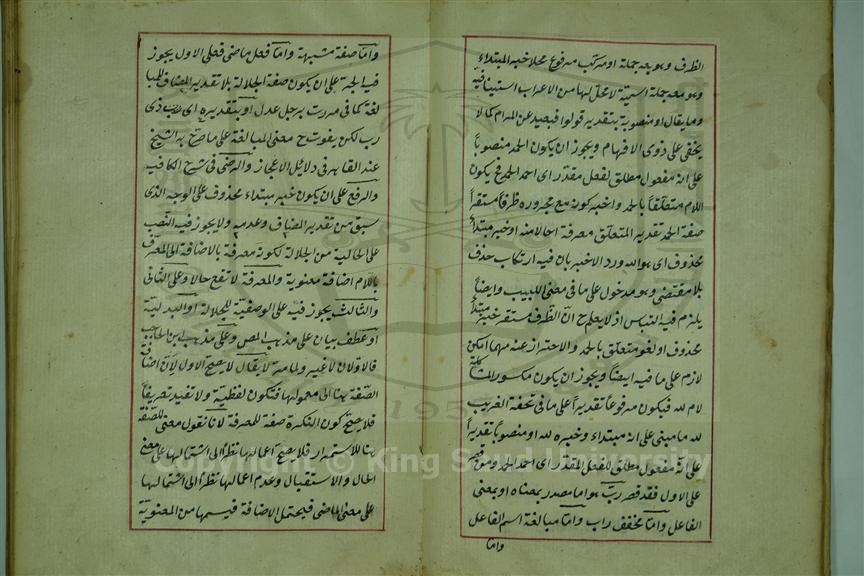 الظرف وهو بعد جملة او مركب مرفوع محلا خبر المبتداء
وهو معه جملة اسمية لا محل لها من الاعراب استينافية
وما يقال او منصوبة بتقدير قولوا فبعيد عن المرام كما لا
يخفى على ذوى الافهام ويجوز ان يكون الحمد منصوباً
على انه مفعول مطلق لفعل مقدر اى احمد الحمد فح يكون
اللام متعلقاً بالحمد واخبر كونه مع مجروره ظرفا مستقراً
صفة الحمد بتقدير المتعلق معرفة او حالا منه او خبر مبتداء
محذوف اى هو لله ورد الاخير بان فيه ارتكاب حذف
بلا مقتضى وهو مدخول على ما فى مغنى اللبيب وايضاً
يلزم فيه التباس اذ لا يعلم ح ان الظرف مستقر خبر مبتداء
محذوف او لغو متعلق بالحمد والاحتراز عنه مهما امكن
لازم على ما فيه ايضاً ويجوز ان يكون مكسور المشاكلة
لام لله فيكون مرفوعاً تقديراً على ما فى تحفة الغريب
لله ما مبنى على انه مبتداء وخبره لله او منصوباً تقديراً
على انه مفعول مطلق للفعل المقدر اى احمد الحمد وهو قصر
على الاول فقد قصر رب هو اما مصدر بمعناه او بمعنى
الفاعل واما مخفف راب واما مبالغة اسم الفاعل
واما
واما صفة مشبهة واما فعل ماضى فعلى الاول يجوز
فيه الجر على ان يكون صفة الجلالة بلا تقدير المضاف للمبا
لغة كما فى مررت برجل عدل او بتقديره اى رب ذى
رب لكن يفوت ح معنى المبالغة على ما صرح به الشيخ
عند القاهر فى دلائل الاعجاز والرضى فى شرح الكافيه
والرفع على ان يكون خبر مبتداء محذوف على الوجه الذى
سبق من تقدير المضاف وعدمه ولا يجوز فيه النصب
على الحالية من الجلالة لكونه معرفة بالاضافة الى المعرف
باللام اضافة معنوية والمعرفة لا تقع حالا وعلى الثانى
والثالث يجوز فيه على الوصفية للجلالة او البدلية
او عطف بيان على مذهب المص وعلى مذهب ابن الحاجب
فالاولان لا غير ولما مر لا يقال لا يصح الاول لان اضافة
الصفة هنا الى معمولها فتكون لفظية ولا تفيد تعريفاً
فلا يصح كون النكرة صفة للمعرفة لانا نقول معنى الصفة
هنا للاستمرار فلا يصح اعمالها نظراً الى اشتمالها على معنى
الحال والاستقبال وعدم اعمالها نظراً الى اشتمالها
على معنى الماضى فيحتمل الاضافة قيسمها من المعنوية
Copyright © King Saud University
195